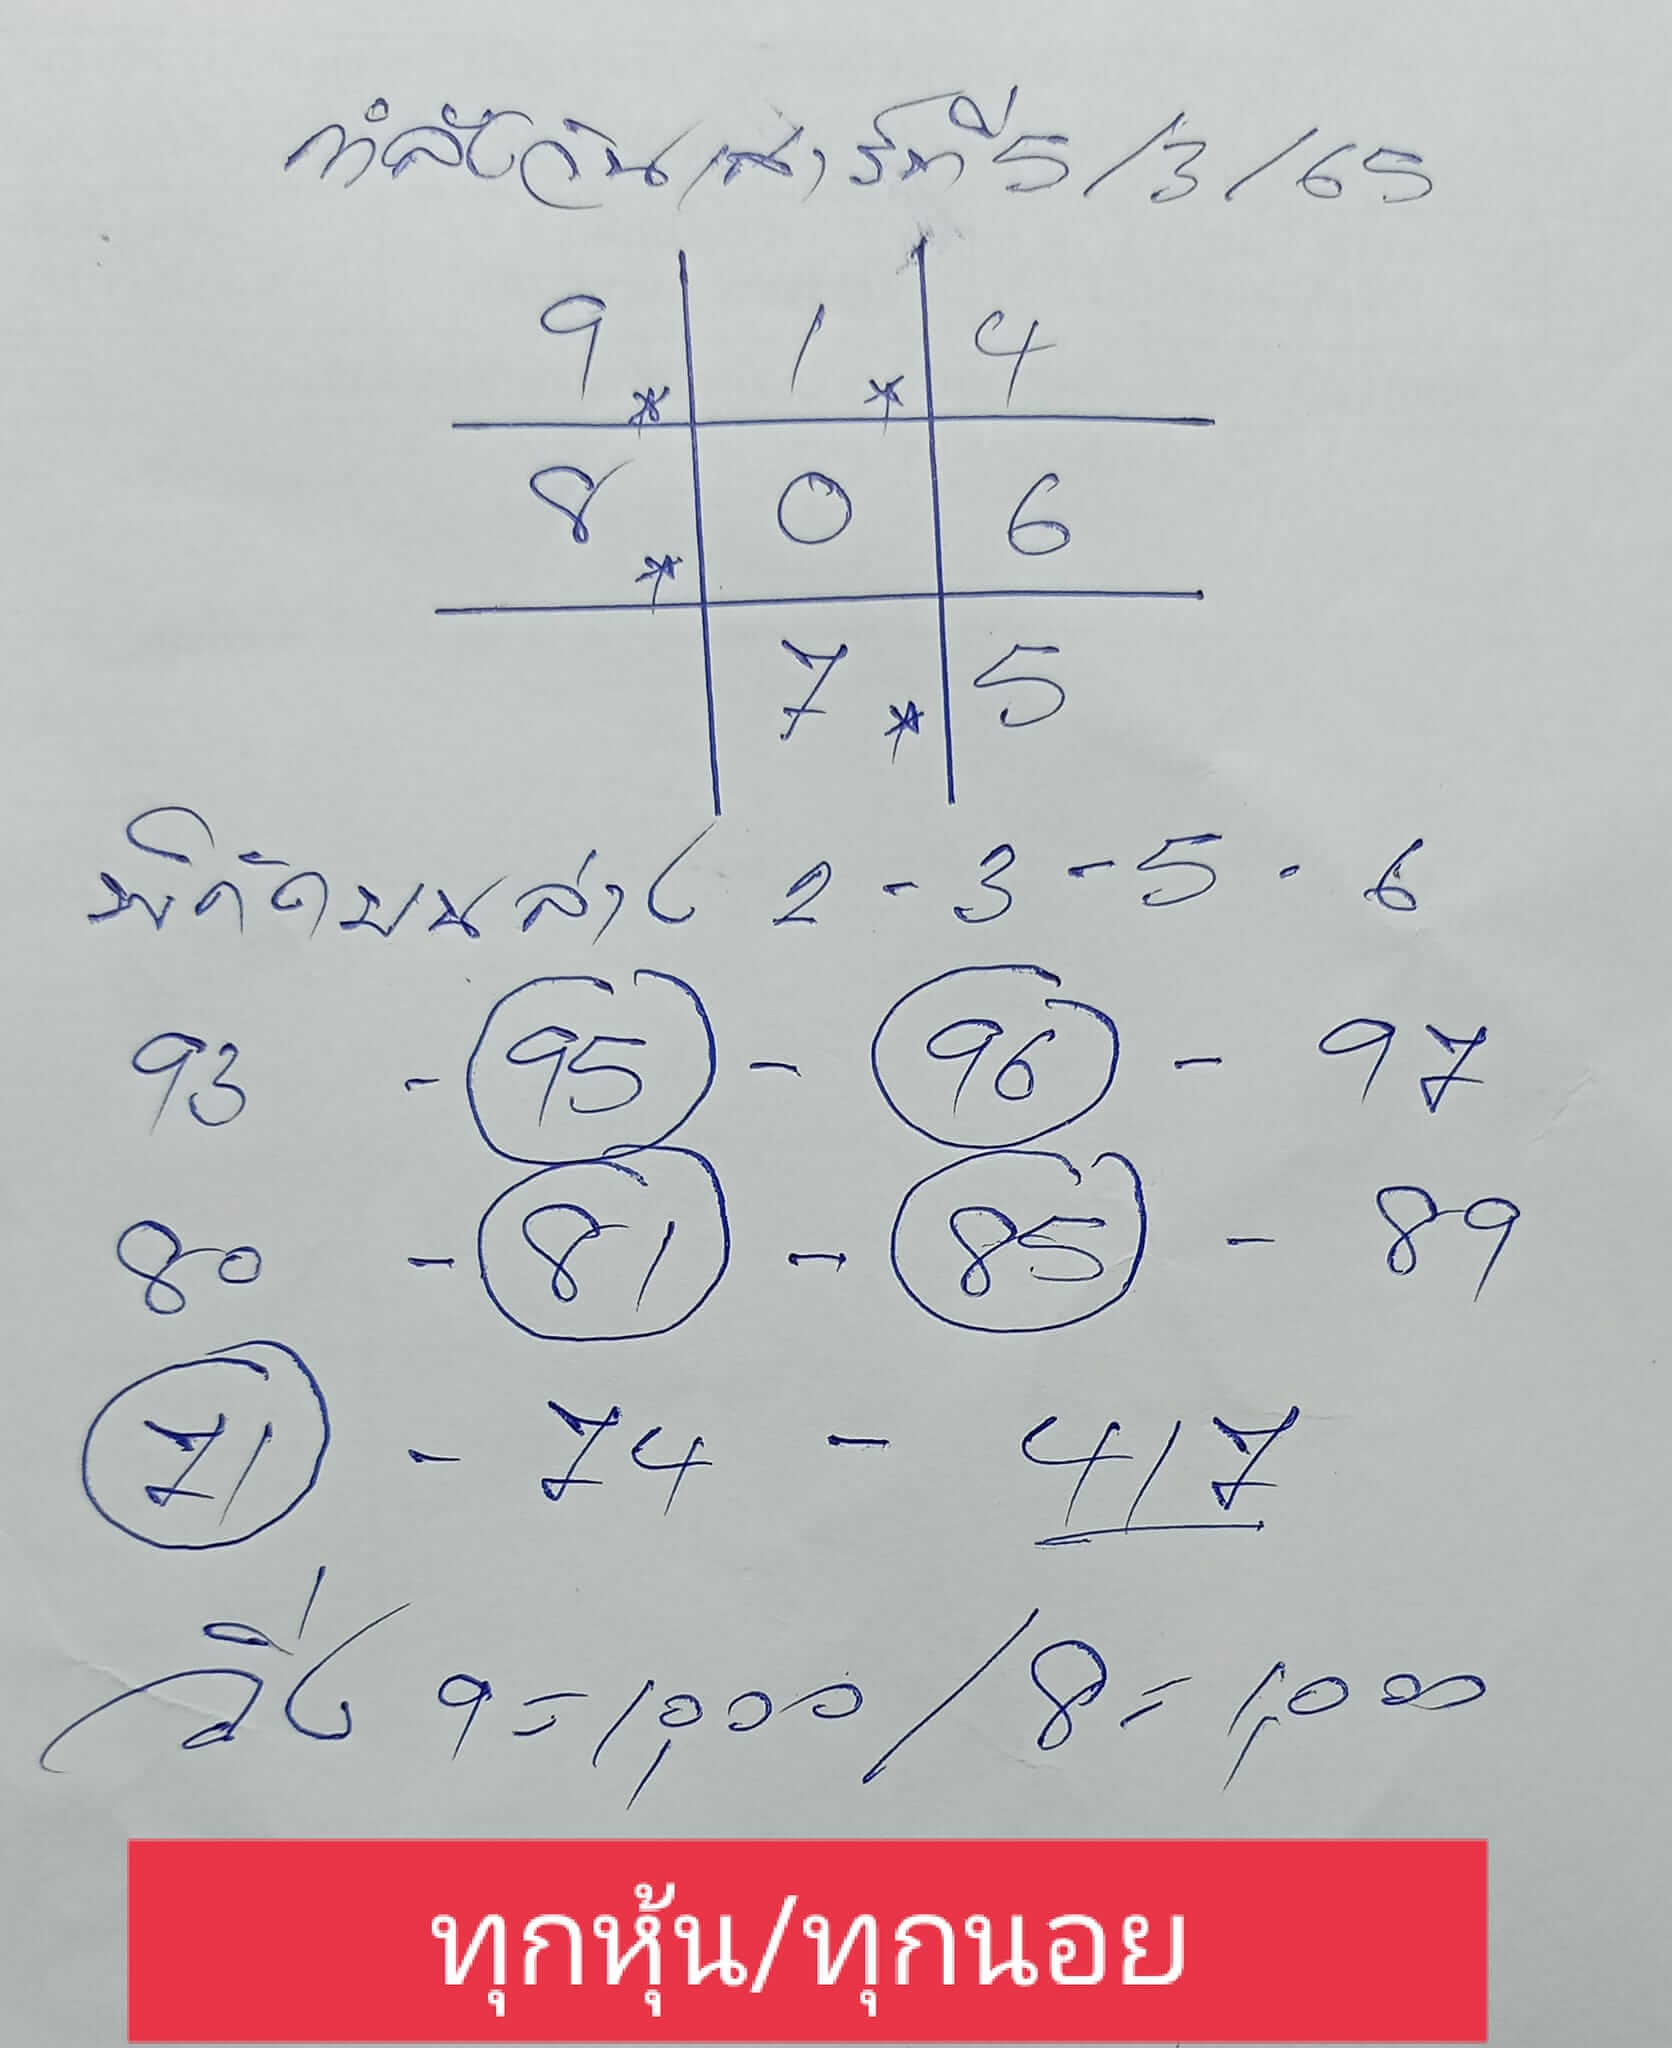 กำลังวันเสาร์ที่ 5/3/65
9 * 1 * 4
8 * 0 6
7 * 5
พิกัดบนล่าง 2 - 3 - 5 - 6
93 - 95 - 96 - 97
80 - 81 - 85 - 89
71 - 74 - 417
วิ่ง 9=1,000/8=1,000
ทุกหุ้น/ทุกนอย